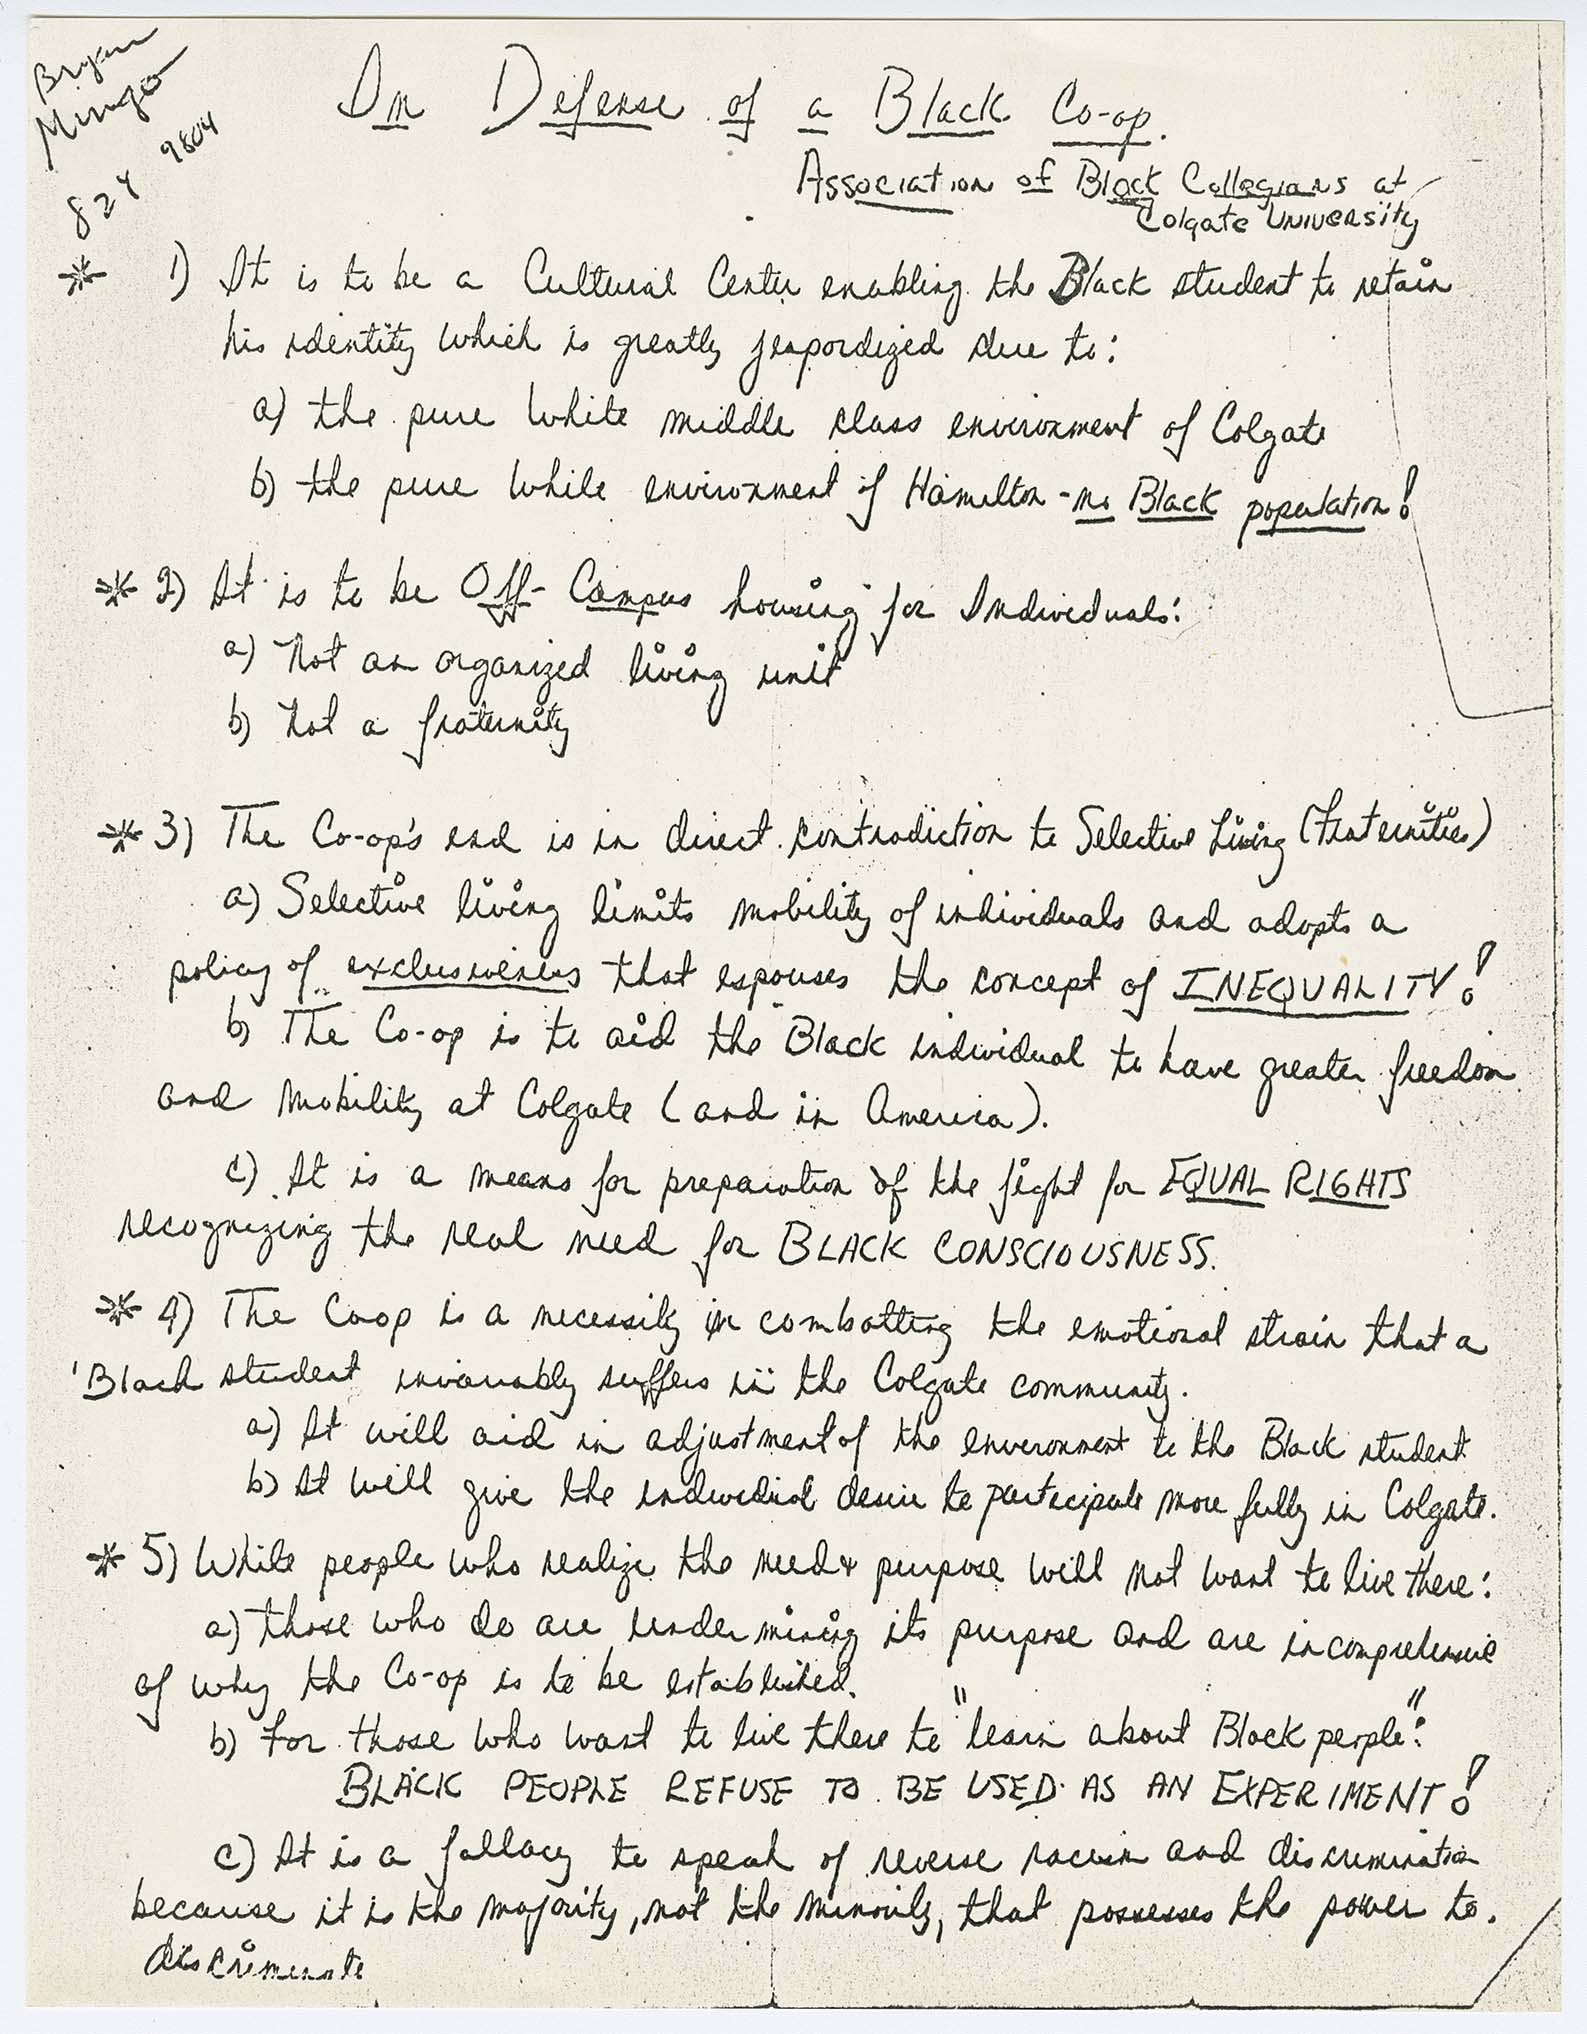 Bryan
Mingo
824 9804
In Defense of a Black Co-op.
Association of Black Collegians at
Colgate University
* 1) It is to be a Cultural Center enabling the Black student to retain
his identity which is greatly jeapordized due to:
a) the pure white middle class environment of Colgate
b) the pure white environment of Hamilton - no Black population!
* 2) It is to be Off-Campus housing for Individuals:
a) Not an organized living unit
b) not a fraternity
* 3) The Co-op's end is in direct contradiction to Selective Living (fraternities)
a) Selective living limits mobility of individuals and adopts a
policy of exclusiveness that espouses the concept of INEQUALITY!
b) The Co-op is to aid the Black individual to have greater freedom
and mobility at Colgate (and in America).
c) It is a means for preparation of the fight for EQUAL RIGHTS
recognizing the real need for BLACK CONSCIOUSNESS.
* 4) The Coop is a necessity in combatting the emotional strain that a
Black student invariably suffers in the Colgate community.
a) It will aid in adjustment of the environment to the Black student
b) It will give the individual desire to participate more fully in Colgate.
* 5) White people who realize the need & purpose will not want to live there:
a) those who do are undermining its purpose and are incomprehensive
of why the Co-op is to be established.
b) For those who want to live there to "learn about Black people":
BLACK PEOPLE REFUSE TO BE USED AS AN EXPERIMENT!
c) It is a fallacy to speak of reverse racism and discrimination
because it is the majority, not the minority, that possesses the power to.
discriminate